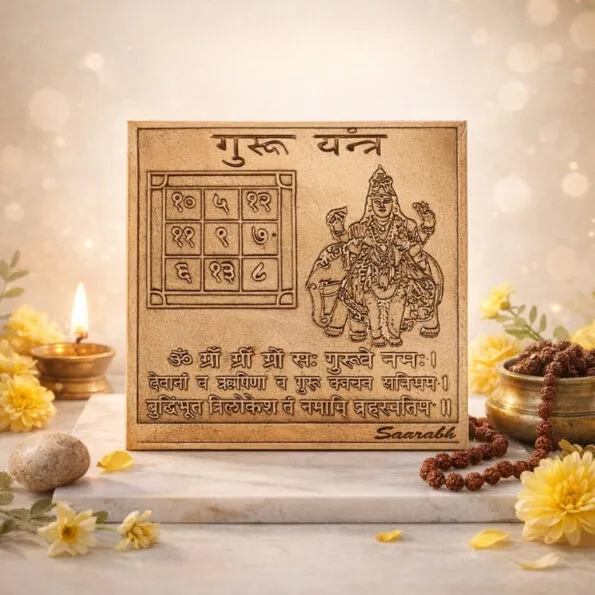 गुरू यंन्त्र
१० ५ १२
११ ९ ७
६ १३ ८
ॐ ग्राँ ग्रीं ग्रों सः गुरूवे नमः।
देवानां व ऋषिणा व गुरू कांचन सन्निभम।
बुद्धिभूत त्रिलोकेश तं नमामि ब्रहस्पतिम ॥
Saarabh